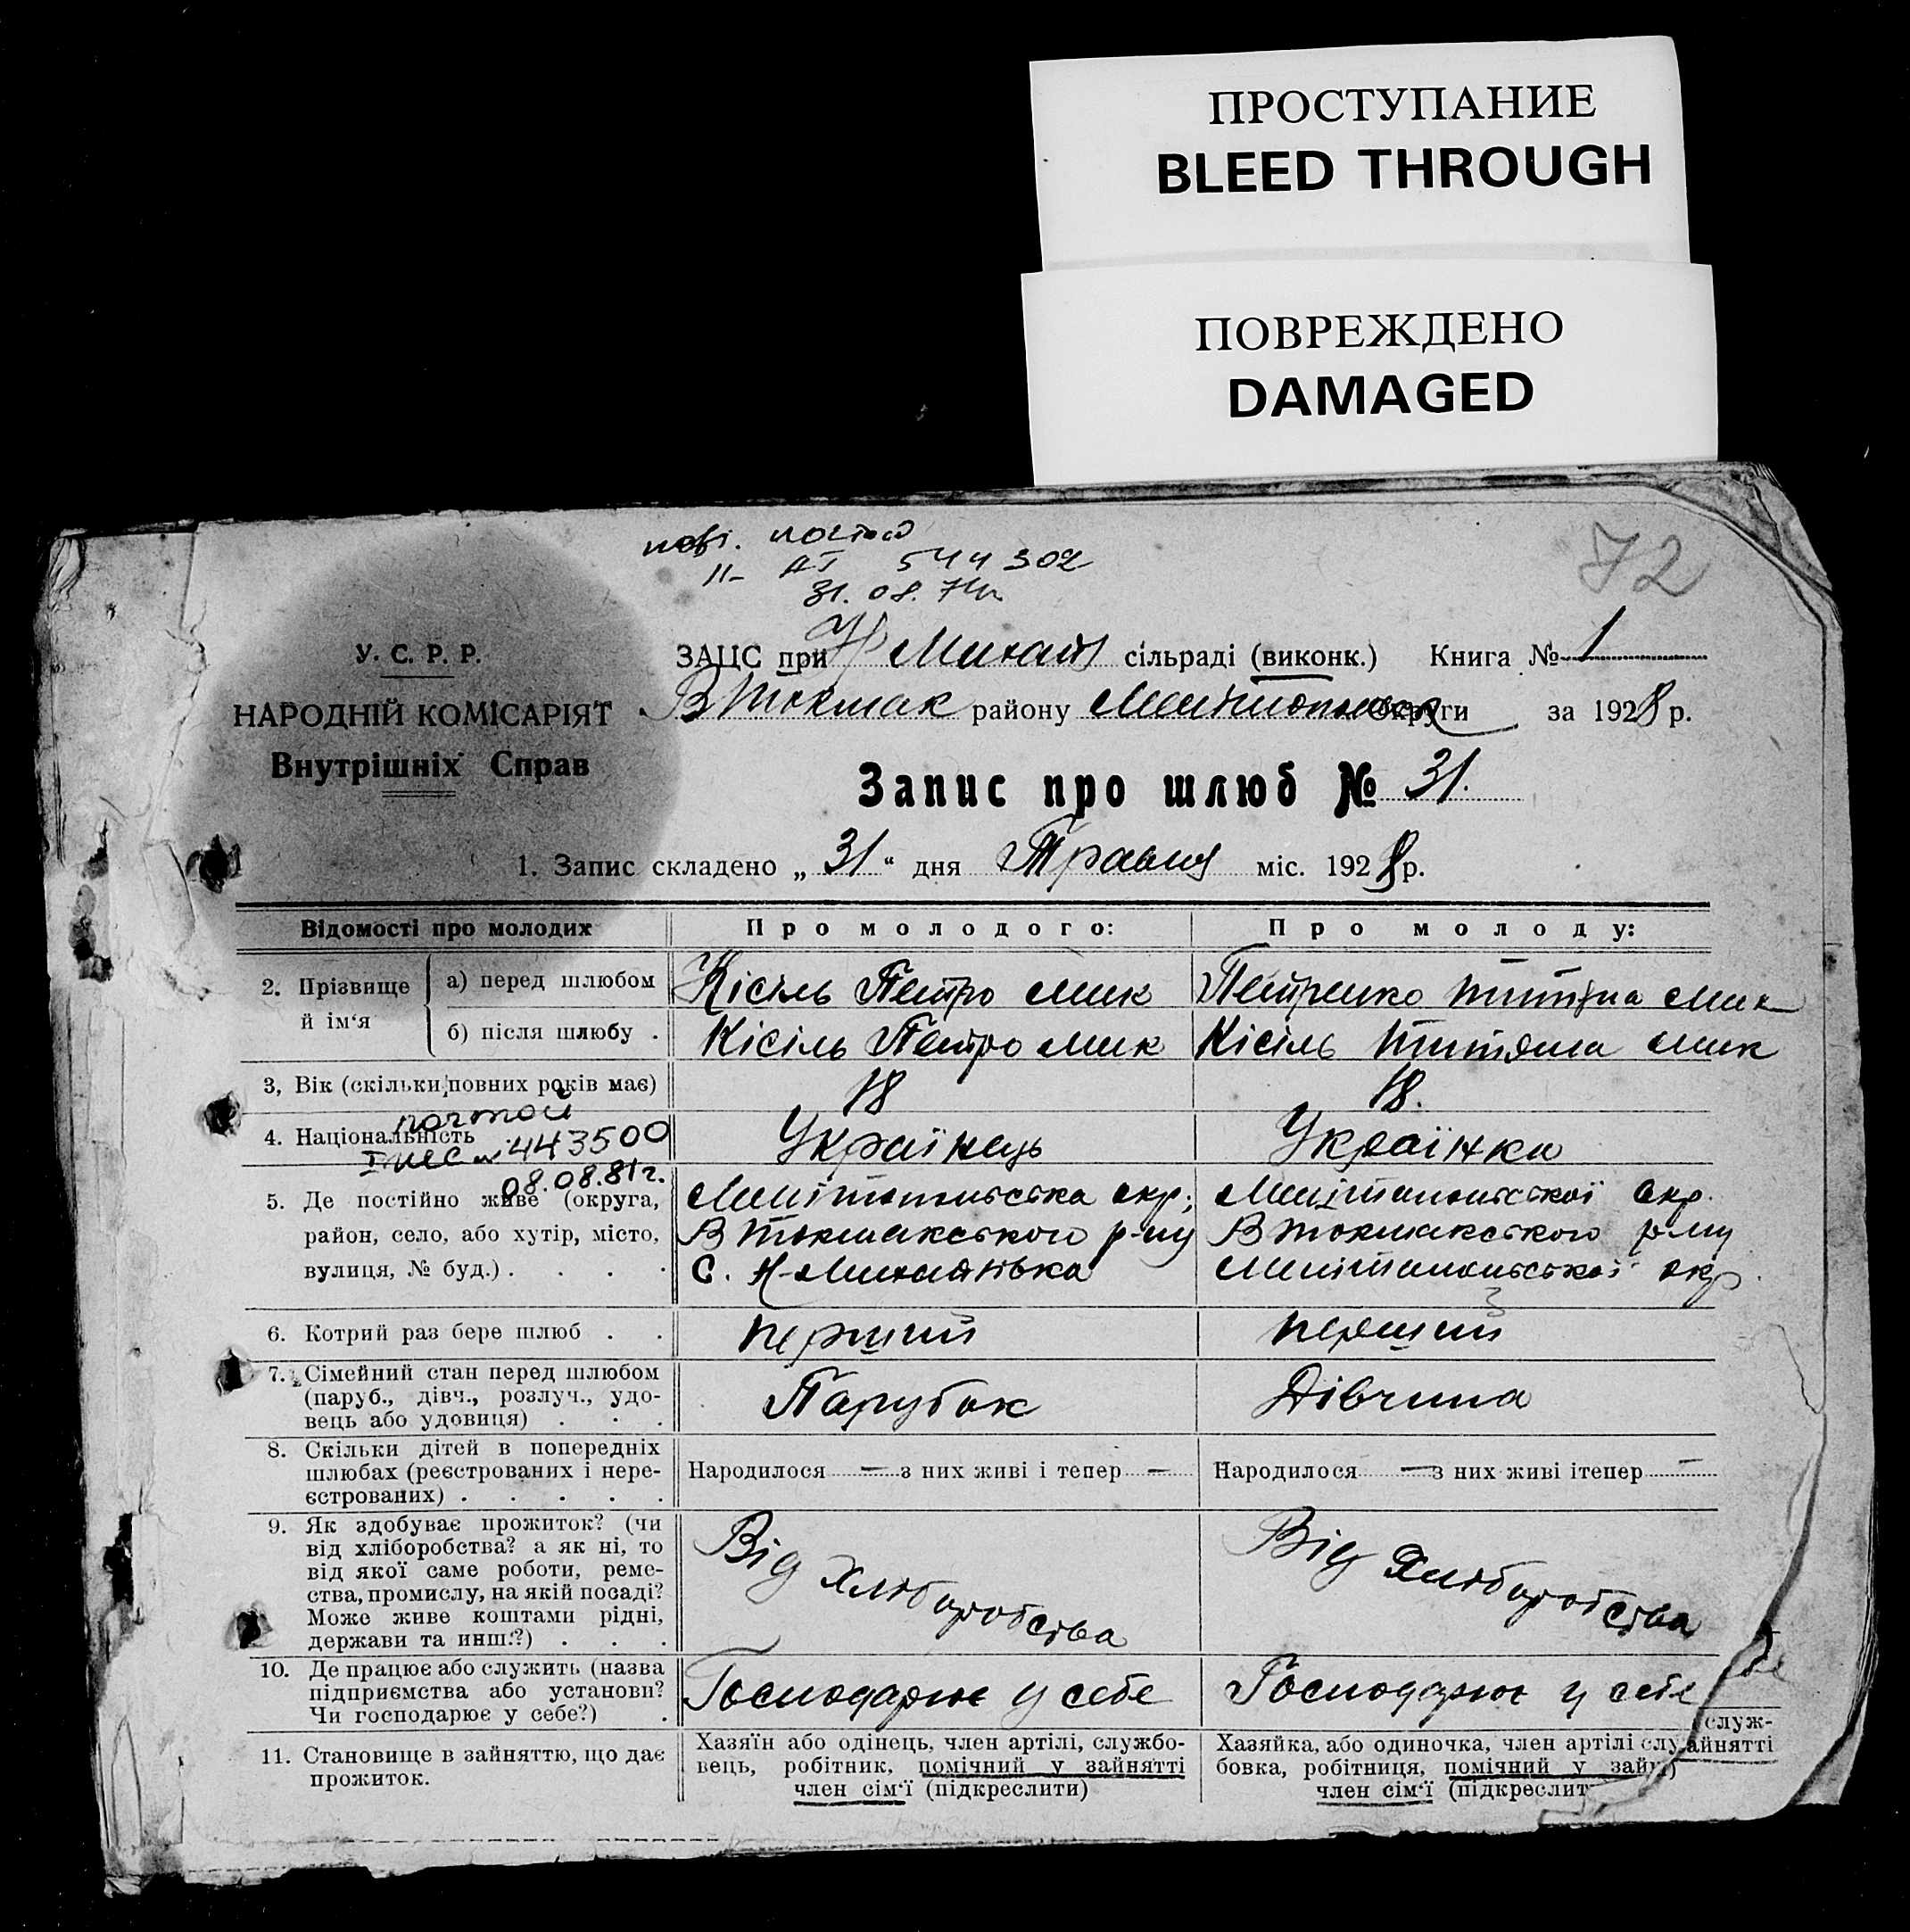 ПРОСТУПАНИЕ
BLEED THROUGH
ПОВРЕЖДЕНО
DAMAGED
почтой
II- АГ 544302
31.08.74г
72
У. С. Р. Р.
НАРОДНІЙ КОМІСАРІЯТ
Внутрішніх Справ
ЗАЦС при Н Михайл сільраді (виконк.) Книга № 1
В Токмак району округи за 1928 р.
Запис про шлюб № 31.
1. Запис складено „ 31 “ дня Травня міс. 1928 р.
Відомості про молодих
Про молодого:
Про молоду:
2. Прізвище й ім‘я
а) перед шлюбом
Кісіль Петро Мик
Петренко Титяна Мик
б) після шлюбу .
Кісіль Петро Мик
Кісіль Титяна Мик
3, Вік (скільки повних років має)
18
18.
4. Національність
почтой
443500
08.08.81г.
Українець
Українка
5. Де постійно живе (округа,
район, село, або хутір, місто,
вулиця, № буд.) . . . .
Мелітопольська окр;
В Токмакського р-ну
С. Н-Михайлівка
Мелітопольської окр.
В Токмакського р-ну
Мелітопольської окр.
6. Котрий раз бере шлюб . .
перший
перший
7. Сімейний стан перед шлюбом
(паруб., дівч., розлуч., удо-
вець або удовиця) . . .
Парубок
Дівчина
8. Скільки дітей в попередніх
шлюбах (реєстрованих і нере-
єстрованих) . . . . .
Народилося — з них живі і тепер —
Народилося — з них живі ітепер —
9. Як здобуває прожиток? (чи
від хліборобства? а як ні, то
від якої саме роботи, реме-
ства, промислу, на якій посаді?
Може живе коштами рідні,
держави та инш.?) . . .
Від хліборобства
Від хліборобства
10. Де працює або служить (назва
підприємства або установи?
Чи господарює у себе?) .
Господарює у себе
Господарює у себе
11. Становище в зайняттю, що дає
прожиток.
Хазяїн або одінець, член артілі, службо-
вець, робітник, помічний у зайнятті
член сім‘ї (підкреслити)
Хазяйка, або одиночка, член артілі слу
бовка, робітниця, помічний у зайн
член сім‘ї (підкреслит
служ-
айнятті